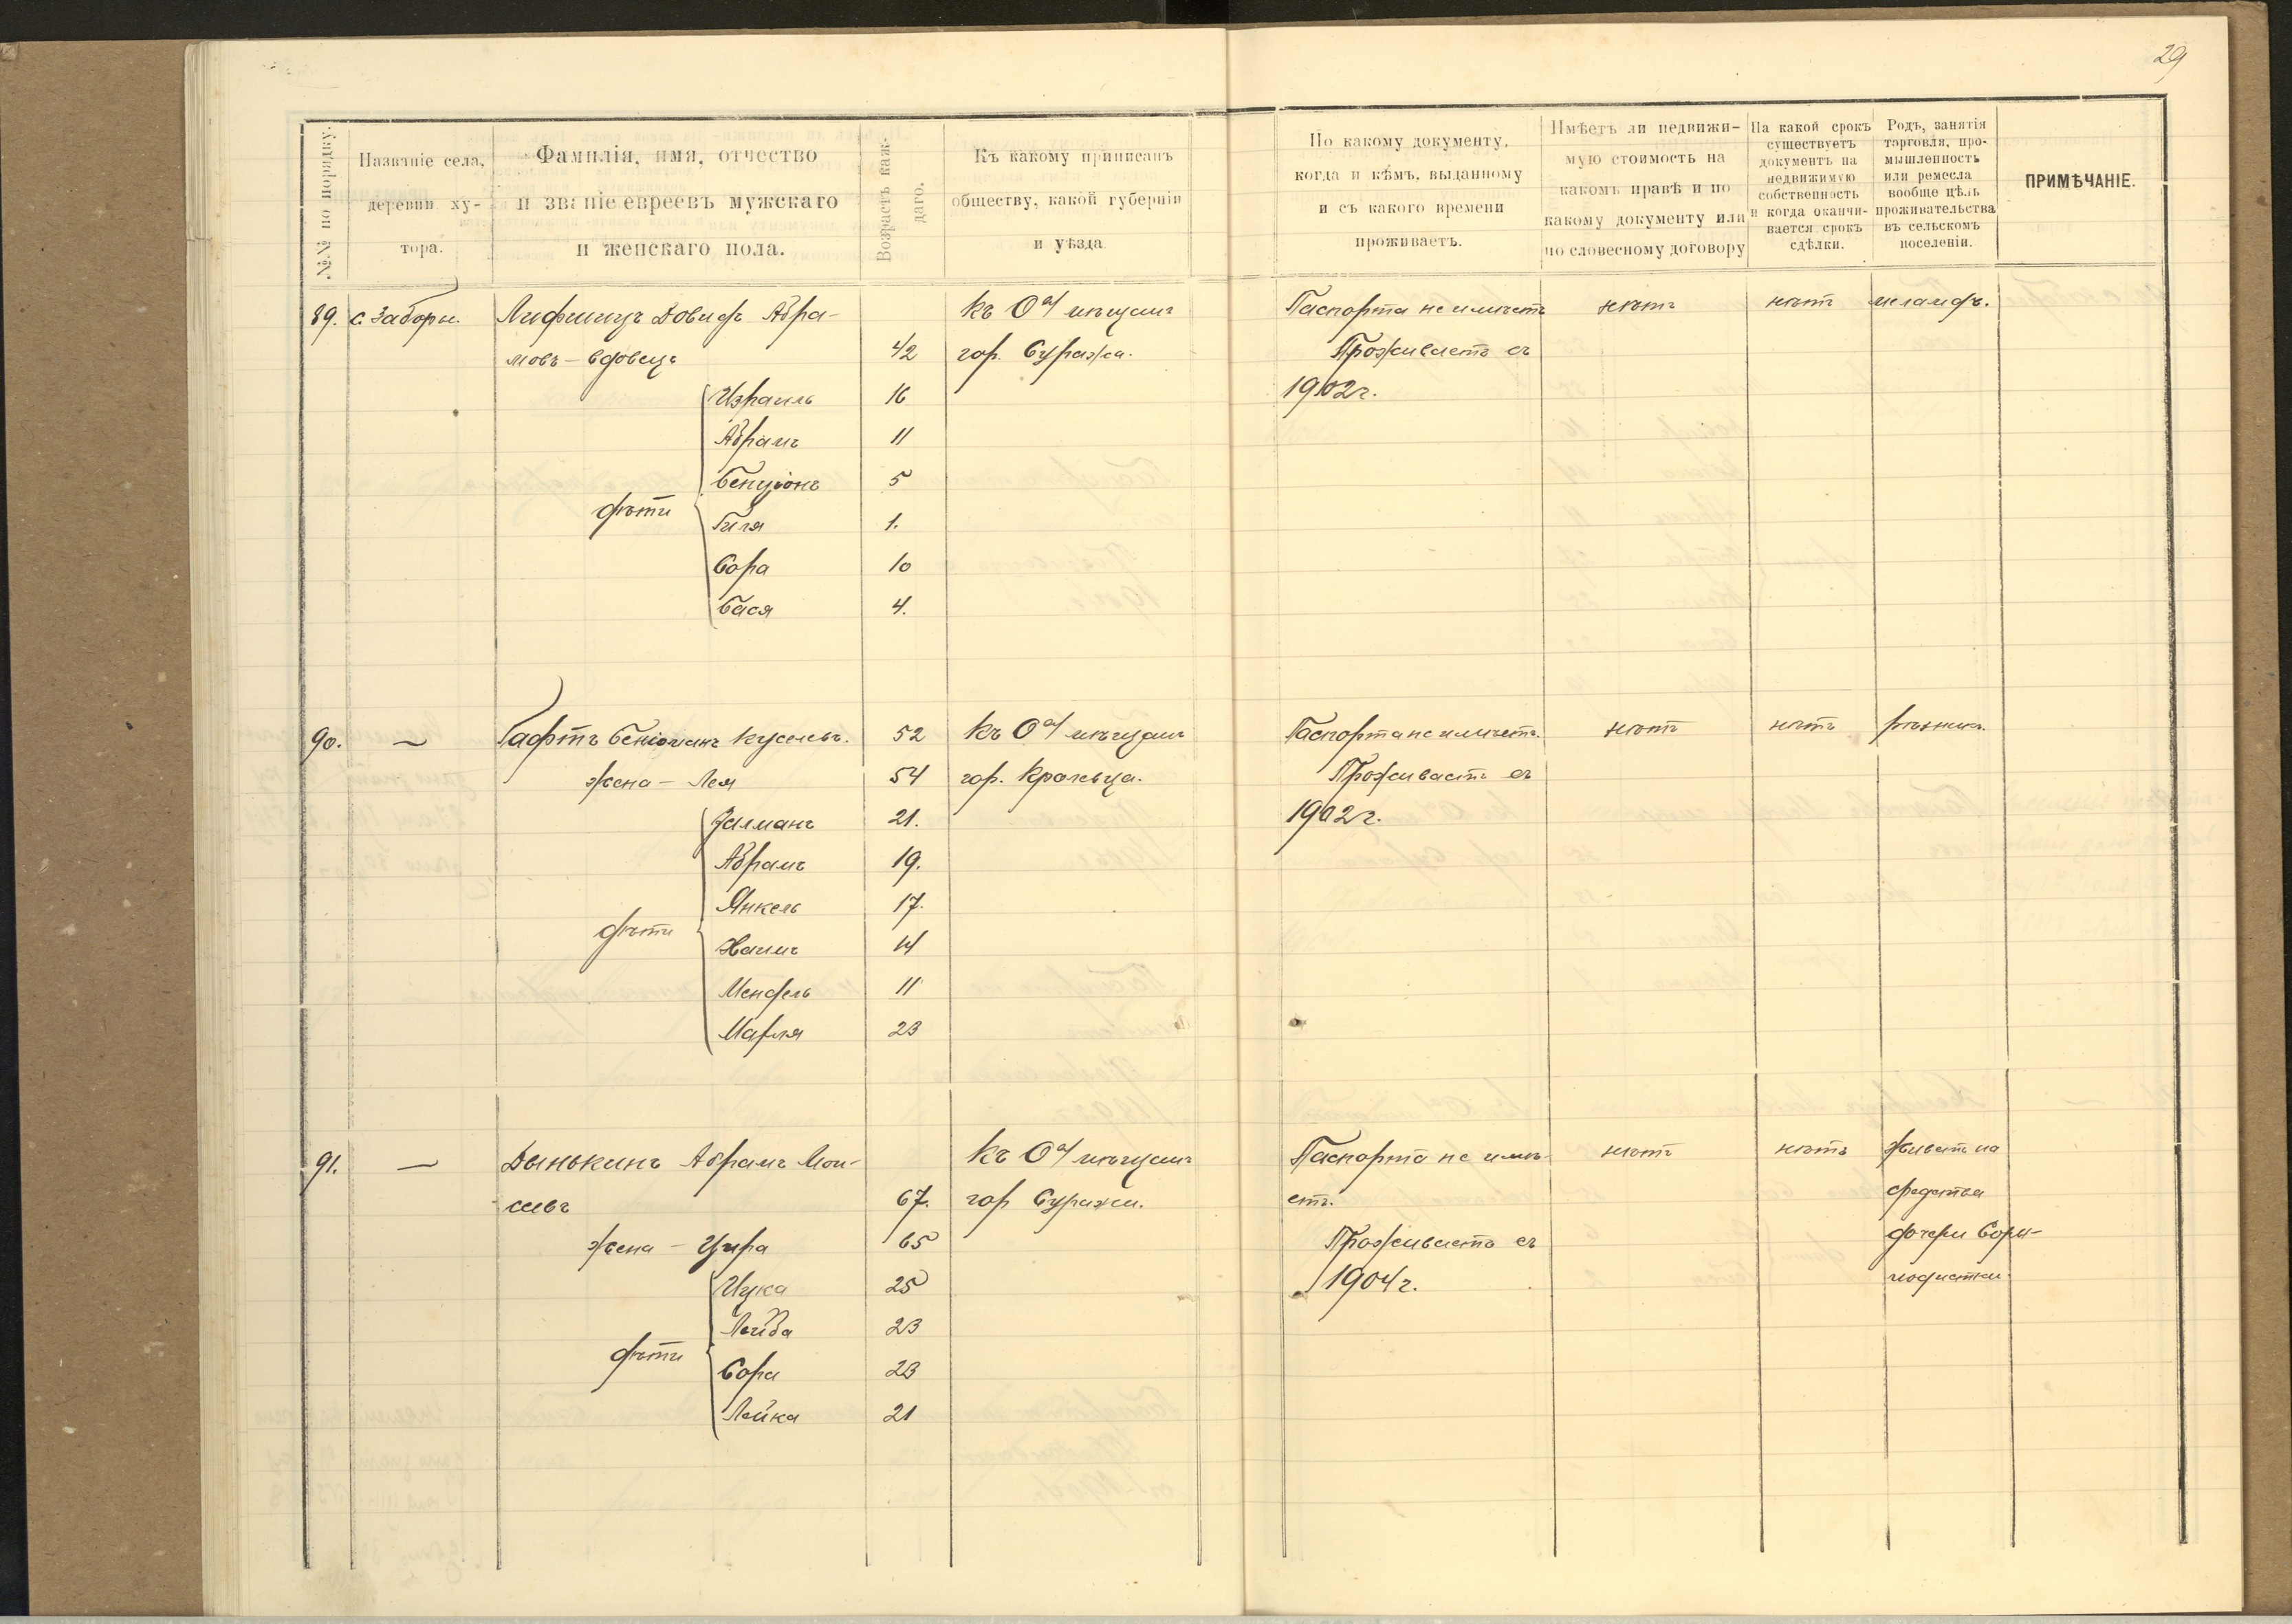 29
№№ по порядку.
Названіе села, деревни ху-тора.
Фамилія, имя, отчество и званіе евреевъ мужскаго и женскаго пола.
Возрастъ каж-даго.
Къ какому приписанъ обществу, какой губерніи и уѣзда
По какому документу, когда и кѣмъ, выданному и съ какого времени проживаетъ.
Имѣетъ ли недвижи-мую стоимость на какомъ правѣ и по какому документу или по словесному договору
На какой срокъ существуетъ документъ на недвижимую собственность и когда оканчи-вается срокъ сдѣлки.
Родъ, занятія торговля, про-мышленность или ремесла вообще цѣль проживательства въ сельскомъ поселеніи.
ПРИМѢЧАНІЕ.
89. с. Заборы. Лифшицъ Довидъ Абра- къ О-у мѣщанъ Паспорта не имѣетъ нѣтъ нѣтъ меламдъ.
мовъ – вдовецъ 42 гор. Суража. Проживаетъ съ
Израиль 16 1902 г.
Абрамъ 11
Бенціонъ 5
дѣти
Гиля 1.
Сора 10
Бася 4.
90. — Гафтъ Беніоминъ Кусіелевъ. 52 къ О-у мѣщанъ Паспорта не имѣетъ. нѣтъ нѣтъ рѣзникъ.
жена – Лея 54 гор. Кролевца. Проживаетъ съ
Залманъ 21. 1902 г.
Абрамъ 19.
Янкель 17.
дѣти
Хаимъ 14
Мендель 11
Марля 23
91. — Дынькинъ Абрамъ Мои- къ О-у мѣщанъ Паспорта не имѣ- нѣтъ нѣтъ живетъ на
сеевъ 67. гор Суража. етъ. средства
жена – Цира 65 Проживаетъ съ дочери Соры-
Ицка 25 1904 г. модистки.
Лейба 23
дѣти
Сора 23
Лейка 21